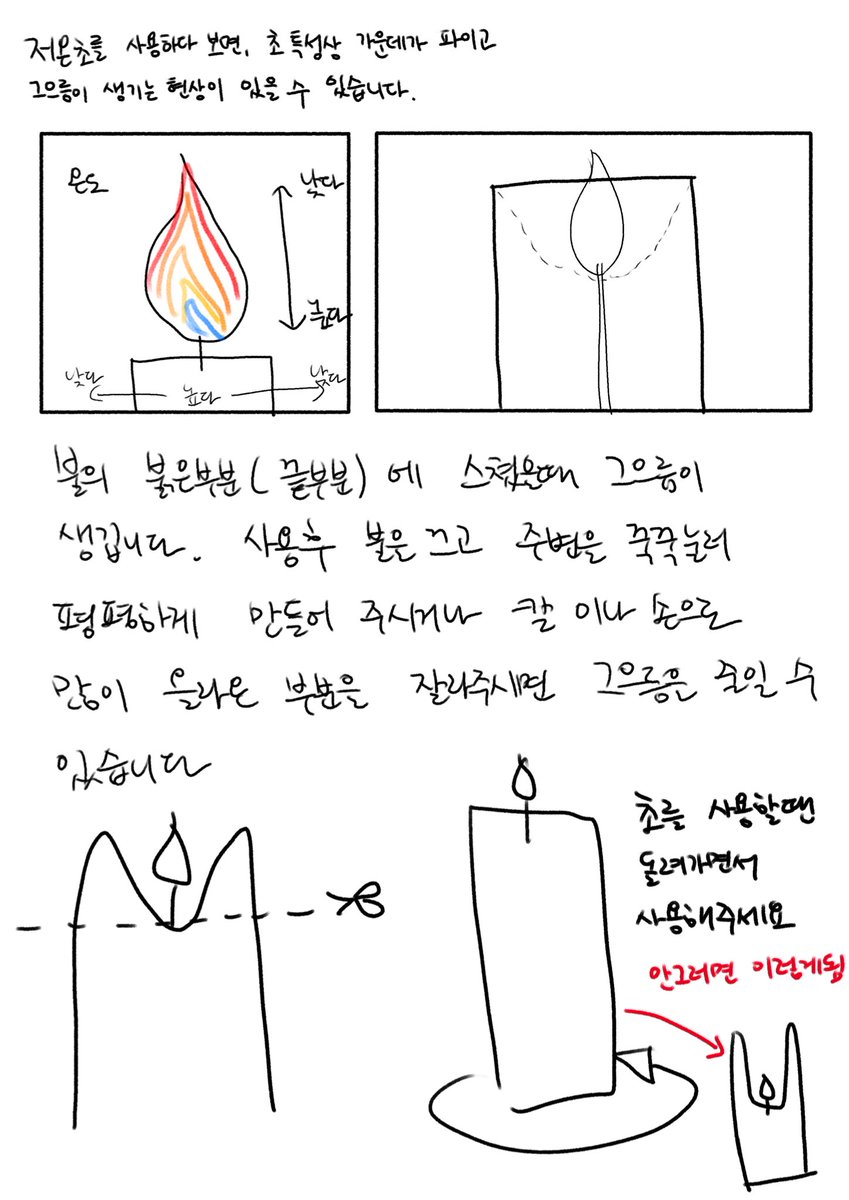 저온초를 사용하다 보면, 초 특성상 가운데가 파이고
그으름이 생기는 현상이 있을 수 있습니다.
온도
낮다
높다
낮다
높다
낮다
불의 붉은부분(끝부분)에 스쳤을때 그으름이
생깁니다. 사용후 불은 끄고 주변을 꾹꾹눌러
평평하게 만들어 주시거나 칼 이나 손으로
많이 올라온 부분을 잘라주시면 그으름을 줄일 수
있습니다
초를 사용할땐
돌려가면서
사용해주세요
안그러면 이렇게됨